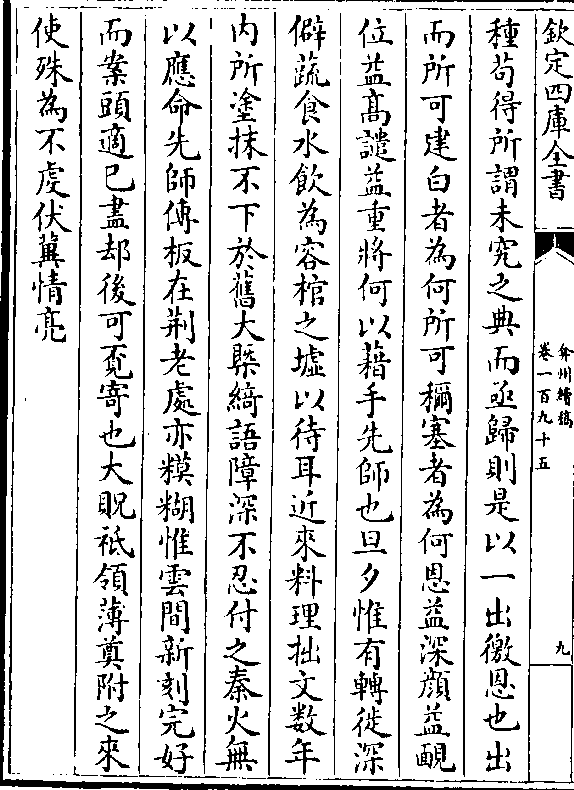 欽定四庫全書
弇州續稿
卷一百九十五
九
種苟得所謂未究之典而亟歸則是以一出徼恩也出
而所可建白者為何所可稱塞者為何恩益深顔益靦
位益髙譴益重將何以藉手先師也旦夕惟有轉徙深
僻蔬食水飲為容棺之墟以待耳近來料理拙文数年
内所塗抹不下於舊大槩綺語障深不忍付之秦火無
以應命先師傳板在荆老處亦糢糊惟雲間新刻完好
而案頭適已盡却後可覔寄也大貺祗領薄奠附之來
使殊為不䖍伏冀情亮